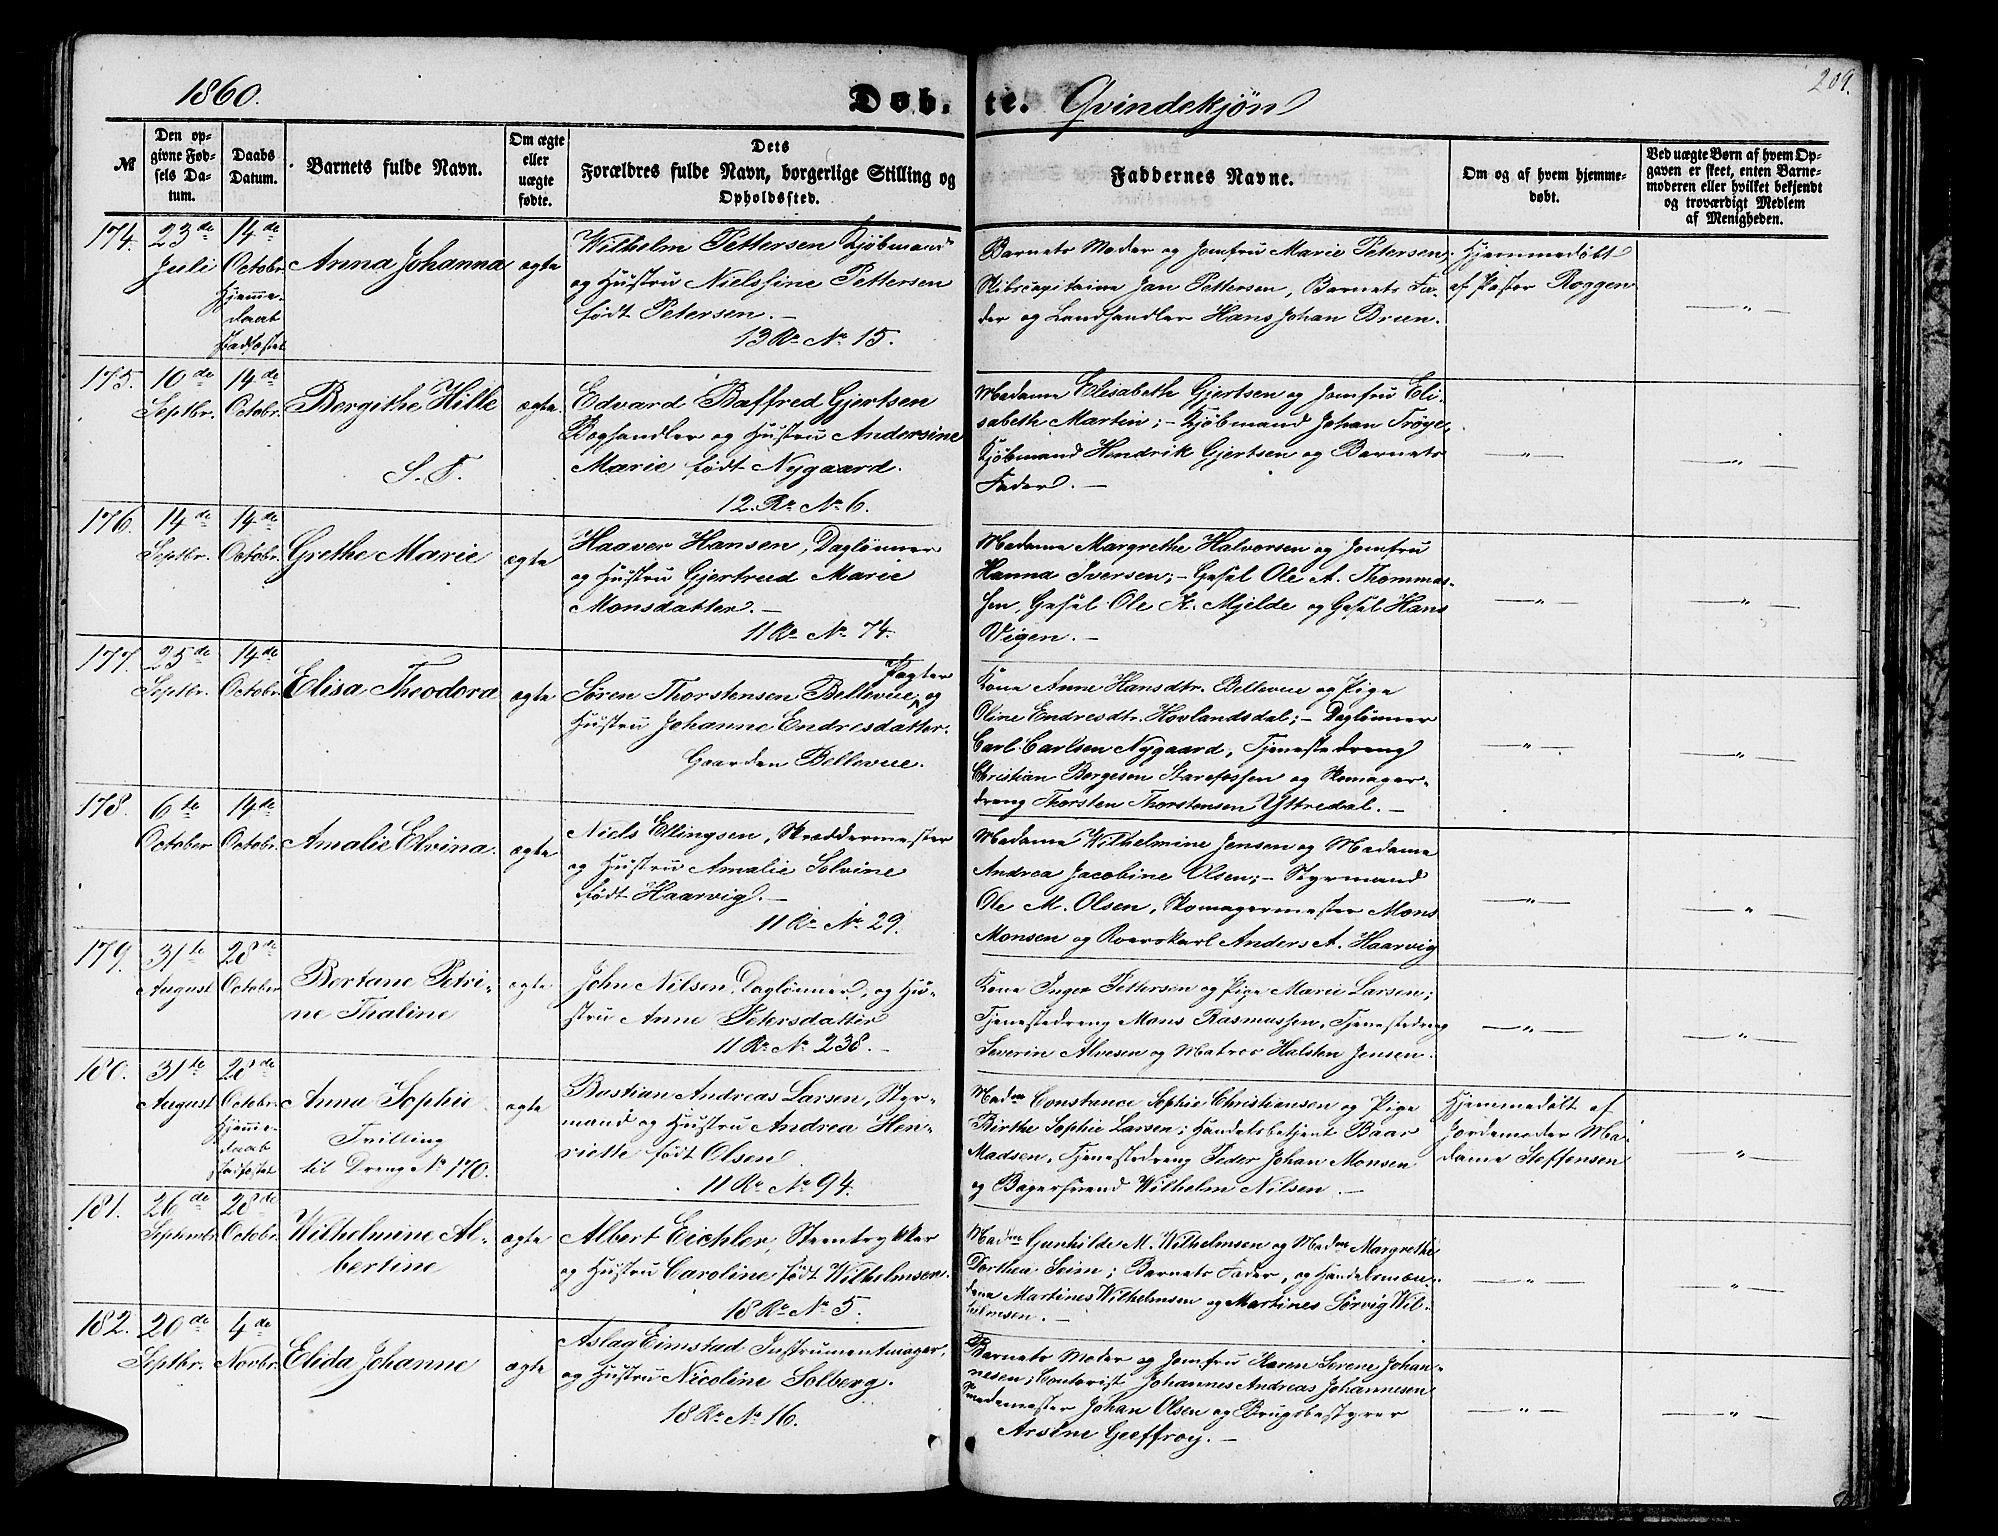 1860.
Døb-te. Qvindekjøn
209.
№
Den op-
givne Fød-
sels Da-
tum.
Daabs
Datum.
Barnets fulde Navn.
Om ægte
eller
uægte
fødte.
Dets
Forældres fulde Navn, borgerlige Stilling og
Opholdssted.
Faddernes Navne.
Om og af hvem hjemme-
døbt.
Ved uægte Børn af hvem Op-
gaven er skeet, enten Barne-
moderen eller hvilket bekjendt
og troværdigt Medlem
af Menigheden.
174.
23de
Juli
14de
Octobr.
Hjemme-
daab
stadfæstet
Anna Johanna
ægte
Wilhelm Pettersen Kjøbmand
og Hustru Nielsine Pettersen
født Petersen.-
13 Re No 15.
Barnets Moder og Jomfru Marie Petersen,
Skibscapitaine Jan Pettersen, Barnets Fa-
der og Landhandler Hans Johan Brun.
Hjemmedøbt
af Pastor Roggen
—"—
175.
10de
Septbr.
14de
Octobr.
Bergithe Hille
S. T.
ægte
Edvard Baffred Gjertsen
Boghandler og Hustru Andersine
Marie født Nygaard.
12. Re No 6.
Madame Elisabeth Gjertsen og Jomfru Eli-
sabeth Martin; - Kjøbmand Johan Trøye,
Kjøbmand Hendrik Gjertsen og Barnets
Fader. -
—"—
—"—
176.
14de
Septbr.
14de
Octobr.
Grethe Marie
ægte
Haaver Hansen, Daglønner
og Hustru Gjertrud Marie
Monsdatter. -
11 Re No 74.
Madame Margrethe Halvorsen og Jomfru
Hanna Iversen; - Gesel Ole A. Thommas-
sen, Gesel Ole K. Mjelde og Gesel Hans
Vigen. -
—"—
—"—
177.
25de
Septbr.
14de
Octobr.
Elisa Theodora
ægte
Pagter
Søren Thorstensen Bellevue, og
Hustru Johanne Endresdatter.
Gaarden Bellevue.
Kone Anne Hansdtr. Bellevue og Pige
Oline Endresdtr. Hovlandsdal; - Daglønner
Carl Carlsen Nygaard, Tjenestedreng
Christian Børgesen Starefossen og Skomager-
dreng Thorsten Thorstensen Yttredal. -
—"—
—"—
178.
6te
October
14de
Octobr.
Amalie Elvina.
ægte
Niels Ellingsen, Skræddermester
og Hustru Amalie Solvine
født Haarvig. -
11 Re No 29.
Madame Wilhelmine Jensen og Madame
Andrea Jacobine Olsen; - Styrmand
Ole M. Olsen, Skomagermester Mons
Monsen og Roerskarl Anders A. Haarvig
—"—
—"—
179.
31te
August
28de
October
Bertane Petri-
ne Thaline
ægte
John Nilsen, Daglønner, og Hu-
stru Anne Petersdatter
11 Re No 238. -
Kone Inger Pettersen og Pige Marie Larsen;
Tjenestedreng Mons Rasmussen, Tjenestedreng
Severin Alvesen og Matros Halsten Jensen.
—"—
—"—
180.
31te
August
28de
Octobr.
Hjemme-
daab
stadfæstet
Anna Sophie
Tvilling
til Dreng No 170.
ægte
Bastian Andreas Larsen, Styr-
mand og Hustru Andrea Hen-
riette født Olsen
11 Re No 94.
Madm Constance Sophie Christiansen og Pige
Birthe Sophie Larsen; Handelsbetjent Baar
Madsen, Tjenestedreng Peder Johan Monsen
og Bagersvend Wilhelm Nilsen. -
Hjemmedøbt af
Jordemoder Ma-
dame Steffensen
—"—
181.
26de
Septembr.
28de
Octobr.
Wilhelmine Al-
bertine
ægte
Albert Eichler, Steentrykker
og Hustru Caroline født Wilhelmsen.
18 Re No 5.
Madm Gunhilde M. Wilhelmsen og Madm Margrethe
Dorthea Seim; Barnets Fader, og Handelsmæn-
dene Martines Wilhelmsen og Martines Sørvig Wil-
helmsen. -
—"—
—"—
182.
20de
Septbr.
4de
Novbr.
Elida Johanne
ægte
Aslag Eimstad Instrumentmager,
og Hustru Nicoline Solberg.
18 Re No 16.
Barnets Moder og Jomfru Karen Serene Johan-
nesen; Contorist Johannes Andreas Johannesen
Smedemester Johan Olsen og Brugsbestyrer
Arsene Geoffroy. -
—"—
—"—